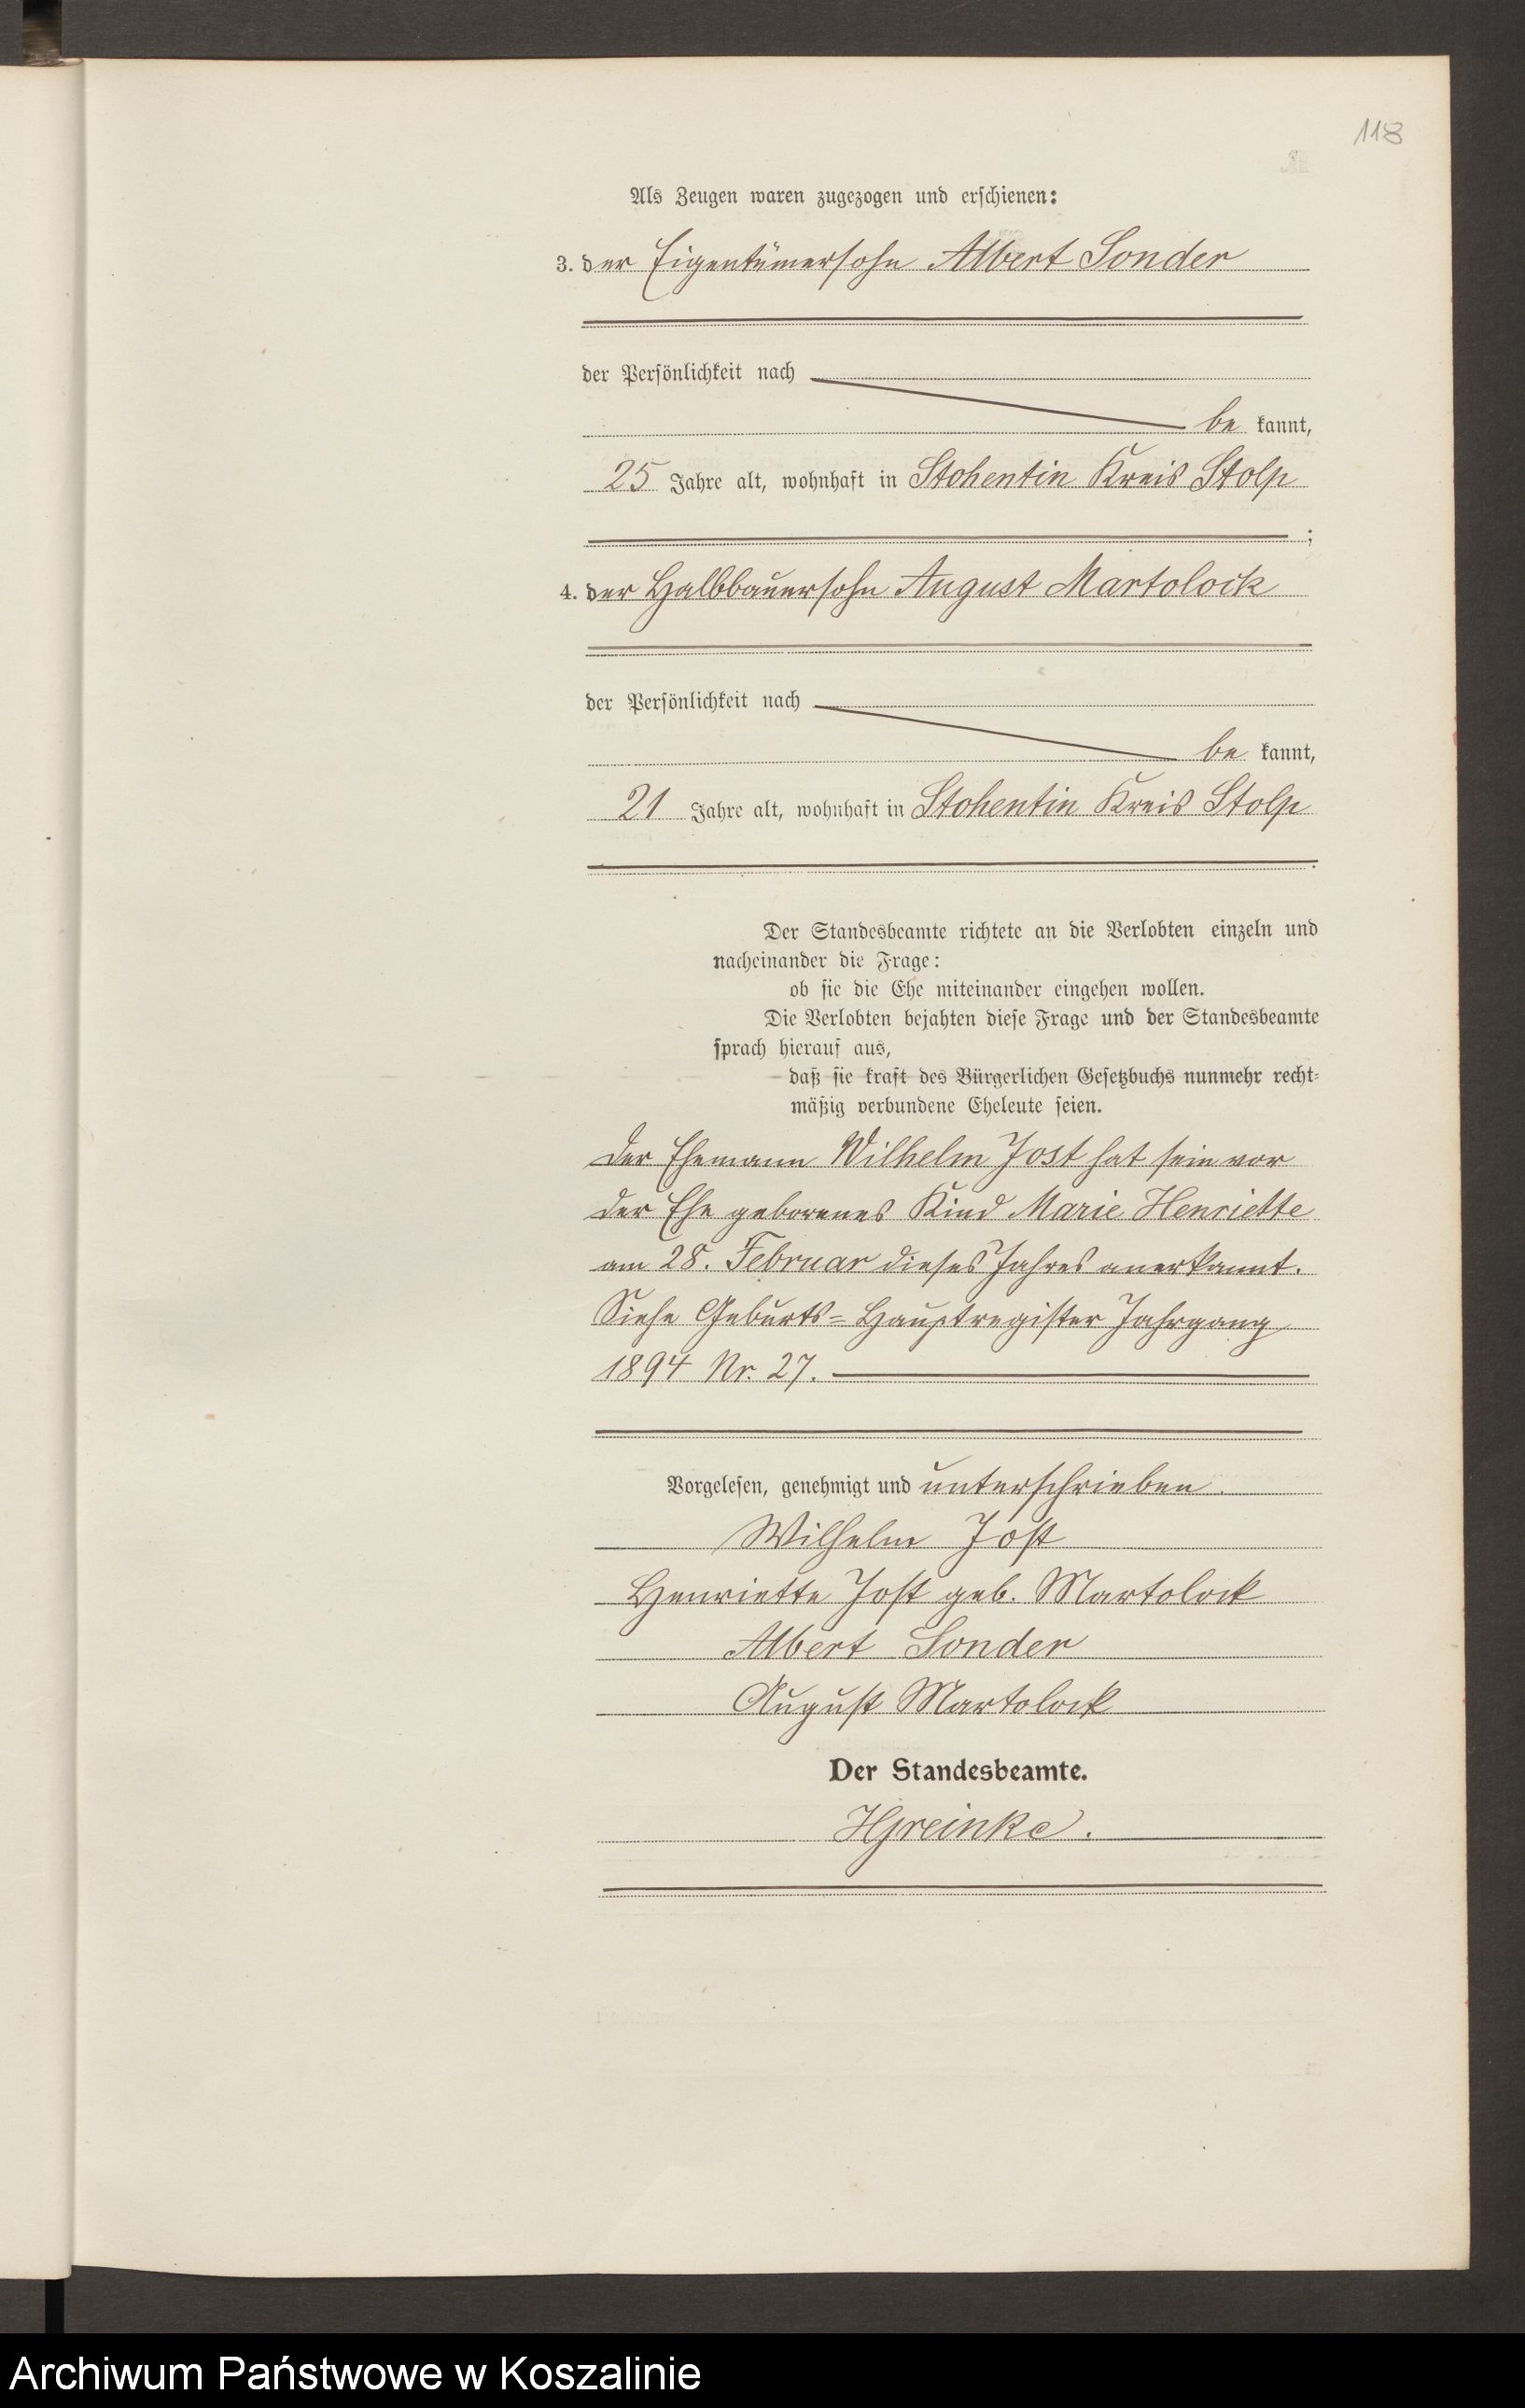 118
Als Zeugen waren zugezogen und erschienen:
3. der Eigentümersohn Albert Sonder
der Persönlichkeit nach
be kannt,
25 Jahre alt, wohnhaft in Stohentin Kreis Stolp
;
4. der Halbbauersohn August Martolock
der Persönlichkeit nach
be kannt,
21 Jahre alt, wohnhaft in Stohentin Kreis Stolp
.
Der Standesbeamte richtete an die Verlobten einzeln und
nacheinander die Frage:
ob sie die Ehe miteinander eingehen wollen.
Die Verlobten bejahten diese Frage und der Standesbeamte
sprach hierauf aus,
daß sie kraft des Bürgerlichen Gesetzbuchs nunmehr recht-
mäßig verbundene Eheleute seien.
Der Ehemann Wilhelm Jost hat sein vor
der Ehe geborenes Kind Marie Henriette
am 28. Februar dieses Jahres anerkannt.
Siehe Geburts-Hauptregister Jahrgang
1894 Nr. 27.
Vorgelesen, genehmigt und unterschrieben.
Wilhelm Jost
Henriette Jost geb. Martolock
Albert Sonder
August Martolock
Der Standesbeamte.
HGreinke.
Archiwum Państwowe w Koszalinie